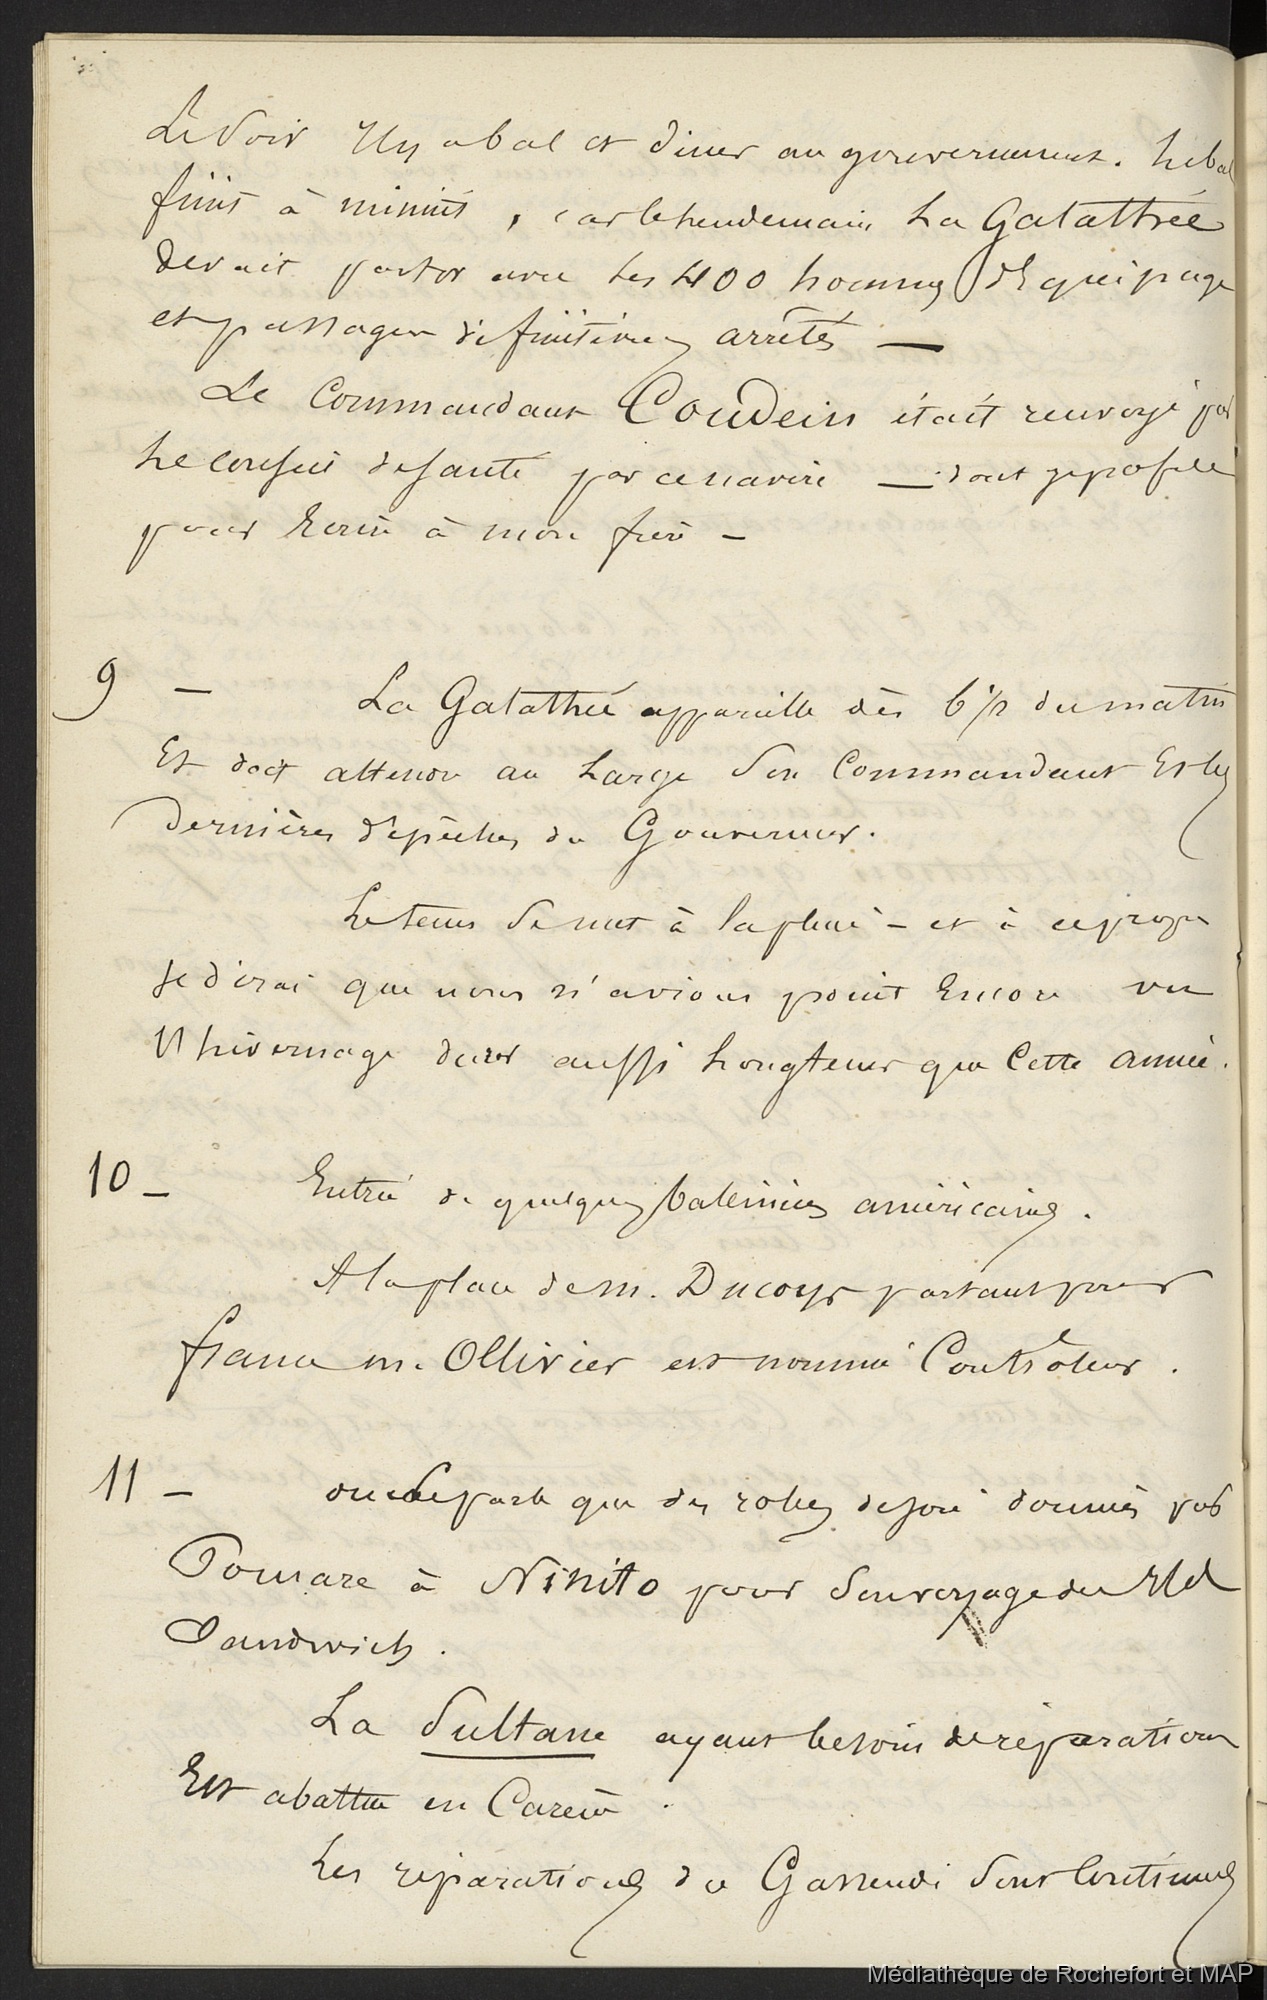 Le soir Il y a bal et diner au gouvernement. Le bal
finit à minuit, car le lendemain La Galatthée
devait partir avec les 400 hommes d'Equipage
et passagers définitivement arrêtés —
Le Commandant Coudein était renvoyé par
Le conseil de santé par ce navire — dont je profite
pour Ecrire à mon frère —
9 — La Galathée appareille dès 6 1/2 du matin
Et doit attendre au Large son Commandant Et les
dernières dépêches du Gouverneur.
Le tems se met à la pluie - et à ce propos
Je dirai que nous n'avions point Encore vu
l'hivernage durer aussi Longtems que Cette année.
10 — Entrée de quelques baleiniers américains.
A la place de m. Ducoys partant pour
france m. Ollivier est nommé Contrôleur.
11 — on ne parle que des robes de soie données par
Pomare à Ninito pour son voyage des Iles
Sandwich.
La Sultane ayant besoin de réparations
Est abattue en Carène.
Les réparations du Gassendi sont Continuées
Médiathèque de Rochefort et MAP